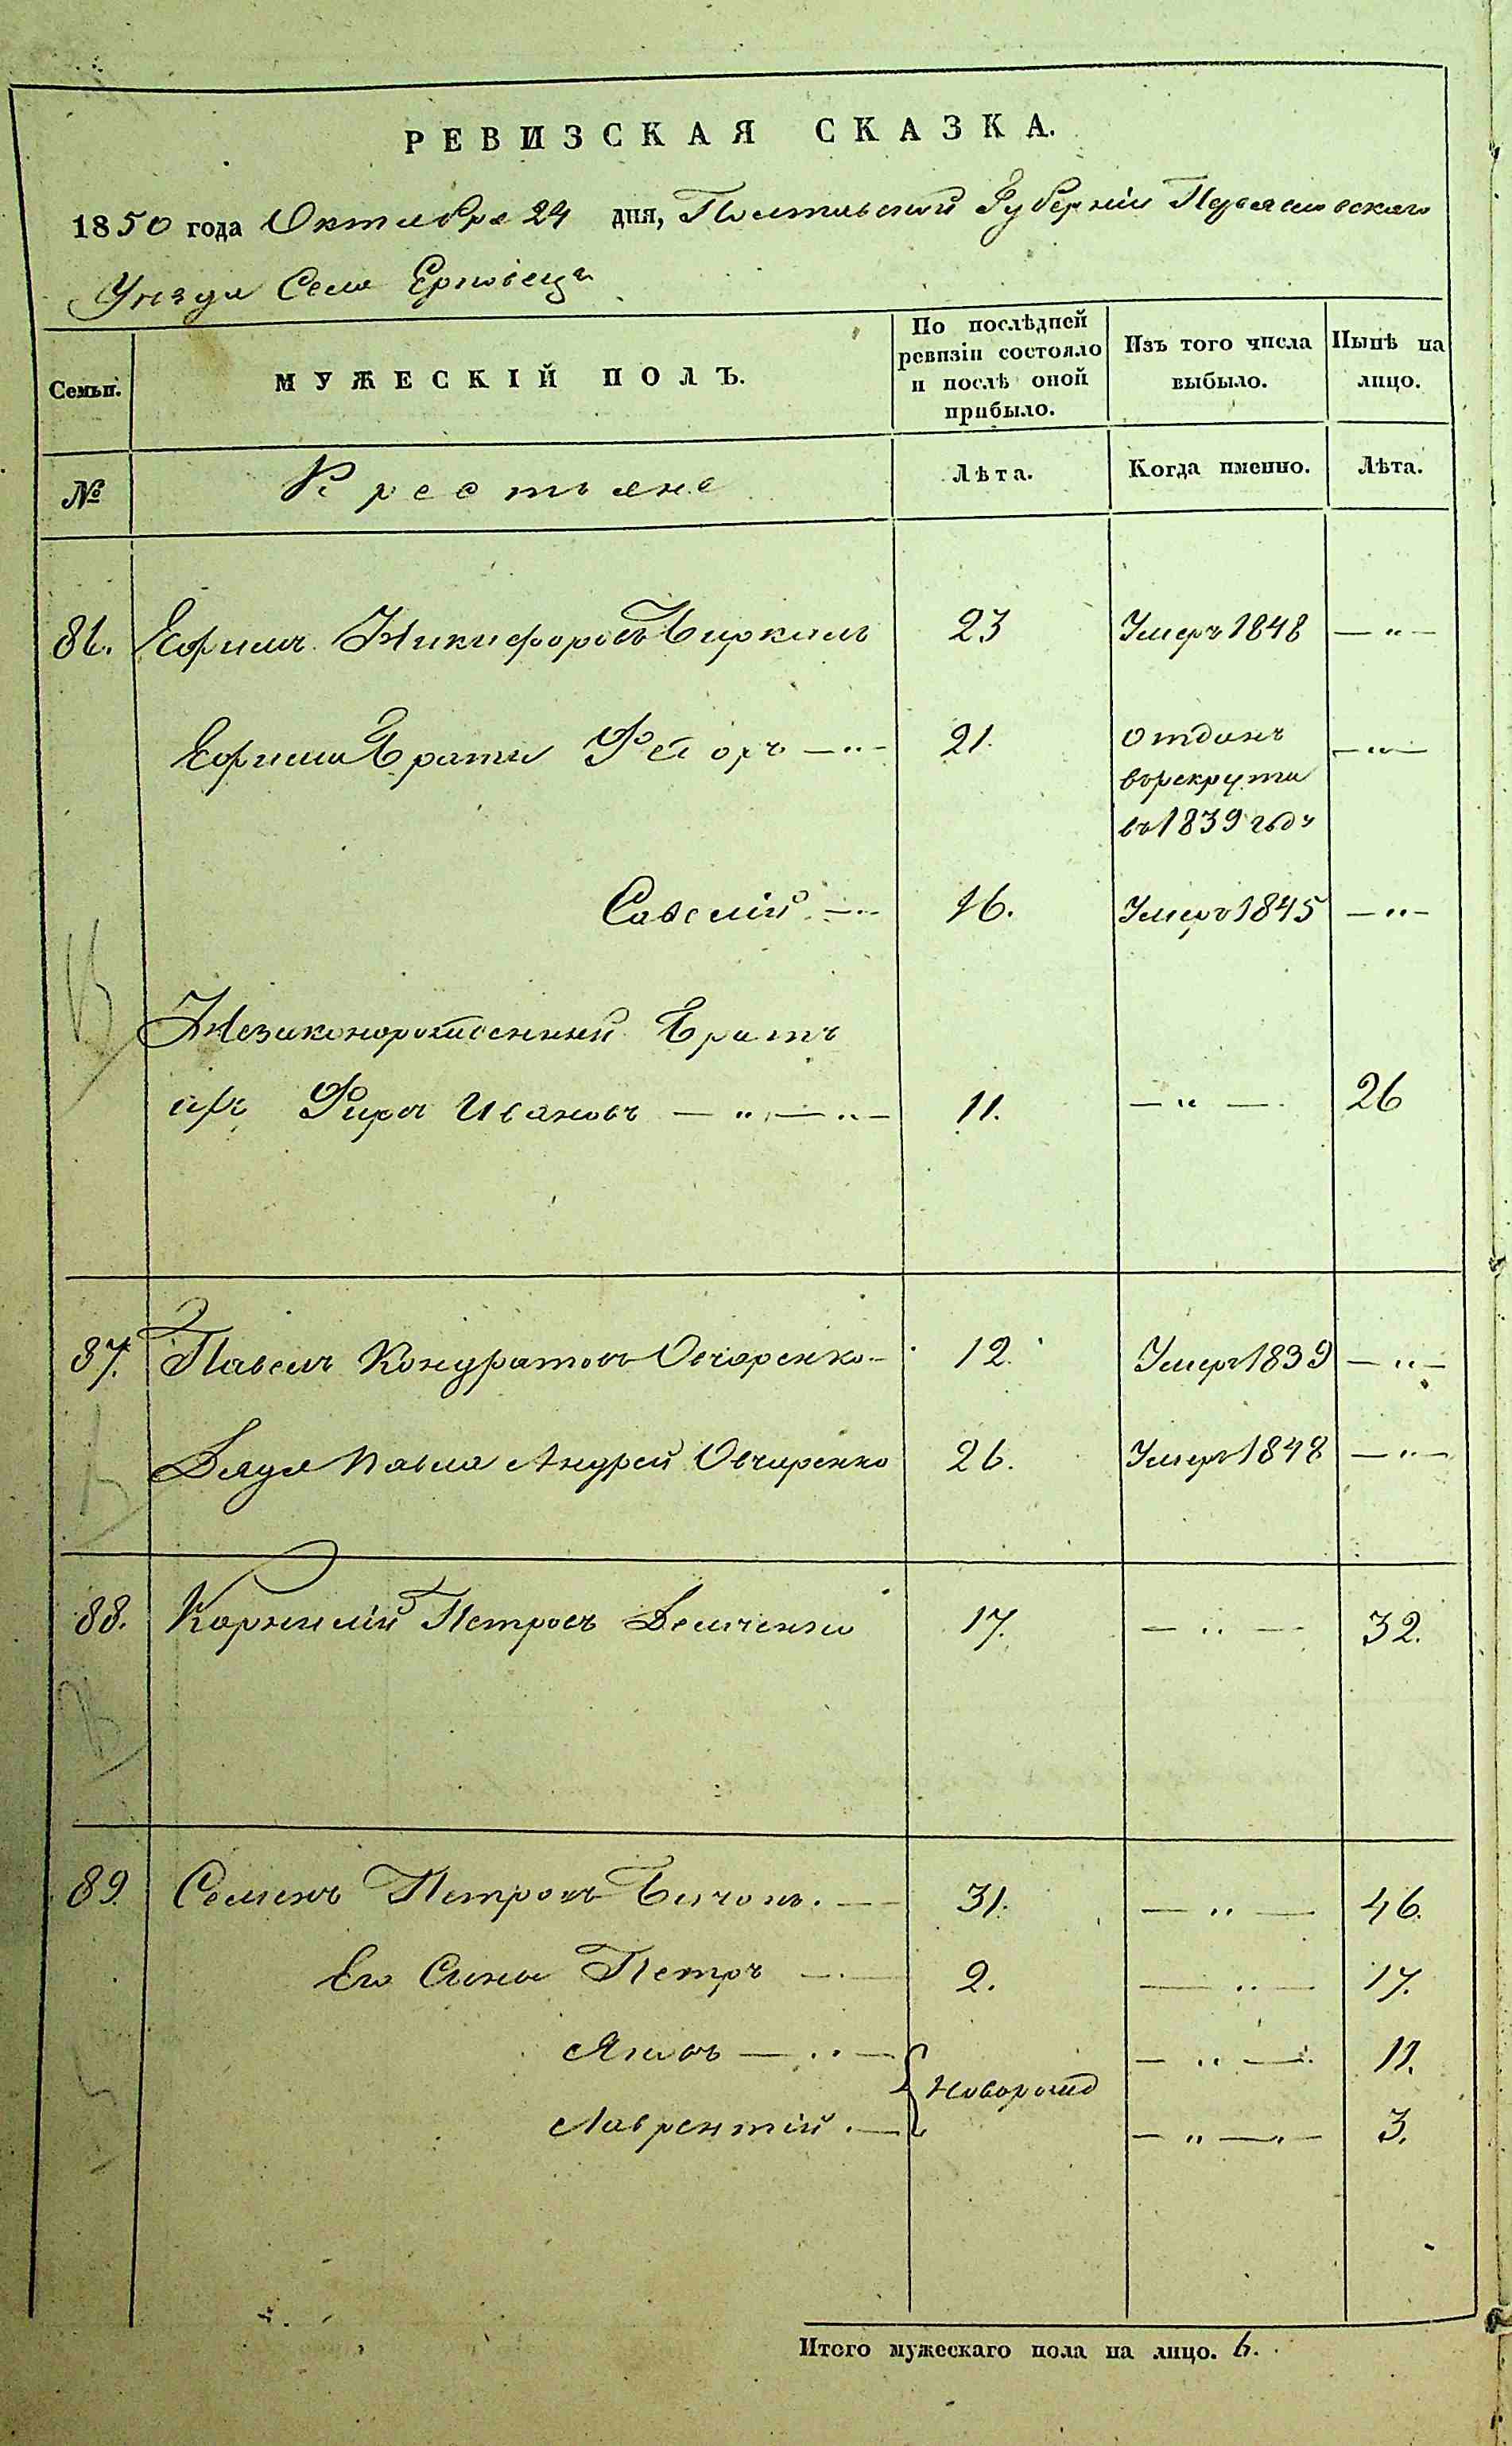 РЕВИЗСКАЯ СКАЗКА.
1850 года Октября 24 дня, Полтавской Губерніи Переяславского
Уезда Села Ерковецъ
Семьи.
МУЖЕСКІЙ ПОЛЪ.
По послѣдней ревизіи состояло и послѣ оной прибыло.
Изъ того числа выбыло.
Нынѣ на лицо.
№ Крестьяне Лѣта. Когда именно. Лѣта.
86. Ефимъ Никифоровъ 23 Умеръ 1848 — " —
Ефима Брати Федоръ — " — 21. отданъ — " —
врекрути
въ 1839 году
Савелій — " — 16. Умеръ 1845 — " —
Незаконорожденный Братъ
ихъ Фирсъ Ивановъ — " — " — 11. — " — 26
87. Павелъ Кондратовъ Овчаренко — 12. Умеръ 1839 — " —
Дядя Павла Андрей Овчаренко 26. Умеръ 1848 — " —
88. Корнилій Петровъ Демченко 17. — " — 32.
89. Семенъ Петровъ — 31. — " — 46.
Его Сины Петръ — " — 2. — " — 17.
Яковъ — " — Новорожд — " — 11.
Лаврентій. — — " — " — 3.
Итого мужескаго пола на лицо. 6.